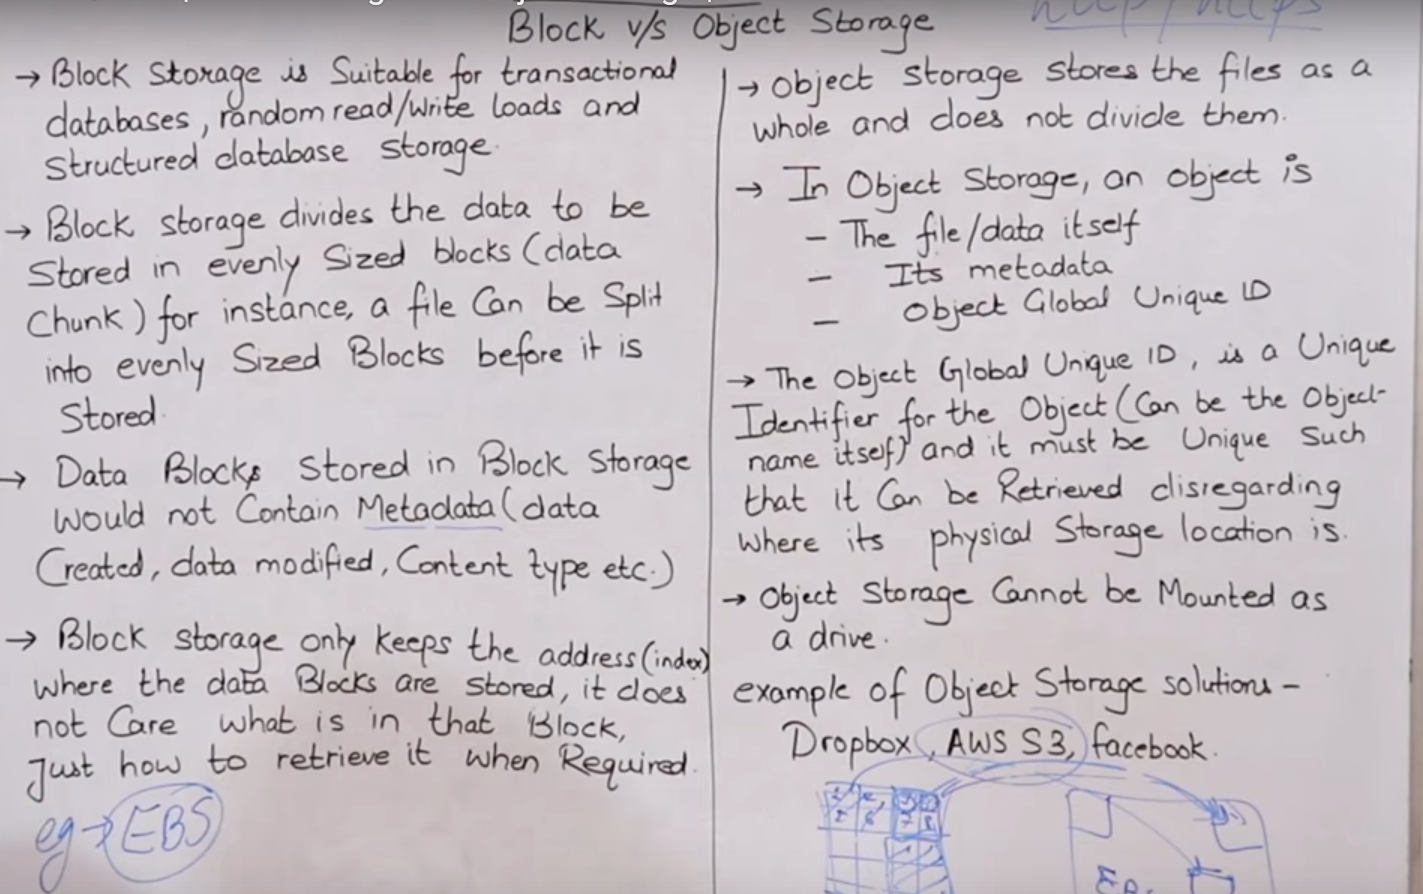 Block v/s Object Storage
http/https
→ Block Storage is Suitable for transactional
databases, random read/write loads and
Structured database storage.
→ Block storage divides the data to be
Stored in evenly Sized blocks (data
Chunk) for instance, a file Can be Split
into evenly Sized Blocks before it is
Stored.
→ Data Blocks Stored in Block Storage
would not Contain Metadata (data
Created, data modified, Content type etc.)
→ Block storage only keeps the address (index)
where the data Blocks are stored, it does
not Care what is in that Block,
Just how to retrieve it when Required.
eg → EBS
→ Object storage stores the files as a
whole and does not divide them.
→ In Object Storage, an object is
- The file/data itself
- Its metadata
- Object Global Unique ID
→ The Object Global Unique ID, is a Unique
Identifier for the Object (Can be the Object
name itself) and it must be Unique Such
that it Can be Retrieved disregarding
where its physical Storage location is.
→ Object Storage Cannot be Mounted as
a drive.
example of Object Storage solutions -
Dropbox, AWS S3, facebook.
7 8